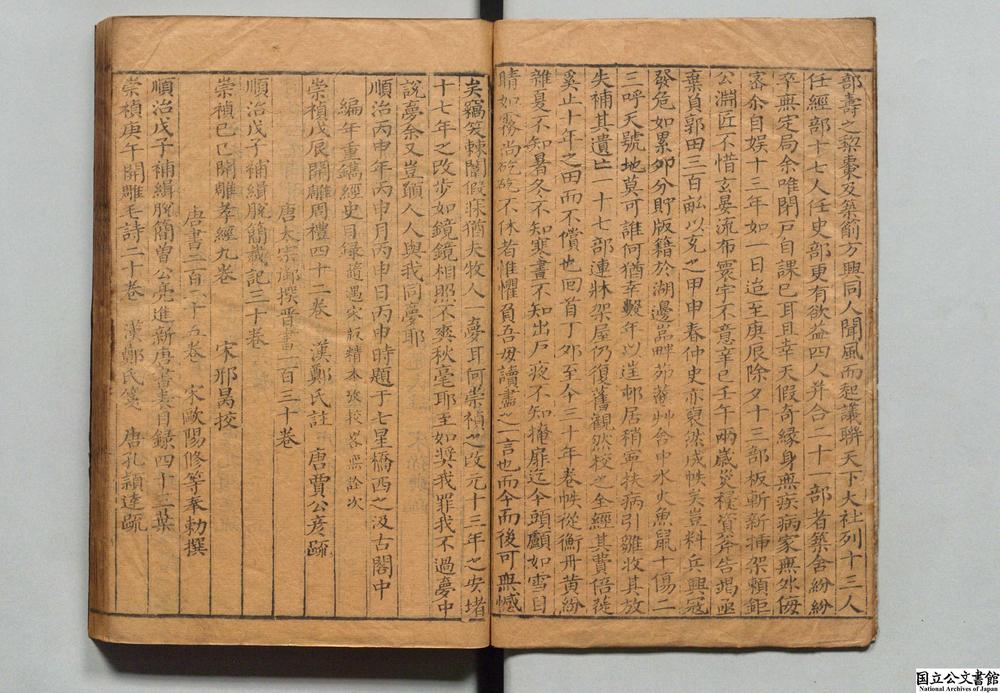 部壽之梨棗及築箭方興同人聞風而起議聯天下大社列十三人
任經部十七人任史部更有欲益四人并合二十一部者築舍紛紛
卒無定局余唯閉戶自課已耳且幸天假奇緣身無疾病家無外侮
密余自娛十三年如一日迨至庚辰除夕十三部板斬新插架賴鉅
公淵匠不惜玄晏流布寰宇不意辛巳壬午兩歲災祲資斧告竭亟
棄負郭田三百畝以充之甲申春仲史亦裒然成帙矣豈料兵興寇
發危如累卵分貯版籍於湖邊嵓畔茆菴艸舍中水火魚鼠十傷二
三呼天號地莫可誰何猶幸數年以往邨居稍寧扶病引雛收其放
失補其遺亡一十七部連牀架屋仍復舊觀然校之全經其費倍蓰
奚止十年之田而不償也回首丁卯至今三十年卷帙從衡丹黃紛
雜夏不知暑冬不知寒晝不知出戶夜不知掩扉迄今頭顱如雪目
睛如霧尚矻矻不休者惟懼負吾母讀盡之一言也而今而後可無憾
矣竊笑棘闈假寐猶夫牧人一夢耳何崇禎之改元十三年之安堵
十七年之改步如鏡鏡相照不爽秋毫耶至如獎我罪我不過夢中
說夢余又豈願人人與我同夢耶
順治丙申年丙申月丙申日丙申時題于七星橋西之汲古閣中
編年重鐫經史目錄 續遇宋版精本攷校畧無詮次
崇禎戊辰開雕周禮四十二卷 漢鄭氏註 唐賈公彥疏
唐太宗御撰晉書一百三十卷
順治戊子補緝脫簡載記三十卷
崇禎己巳開雕孝經九卷 宋邢昺校
唐書二百二十五卷 宋歐陽修等奉勅撰
順治戊子補緝脫簡曾公亮進新唐書表目錄四十三葉
崇禎庚午開雕毛詩二十卷 漢鄭氏箋 唐孔穎達疏
国立公文書館
National Archives of Japan